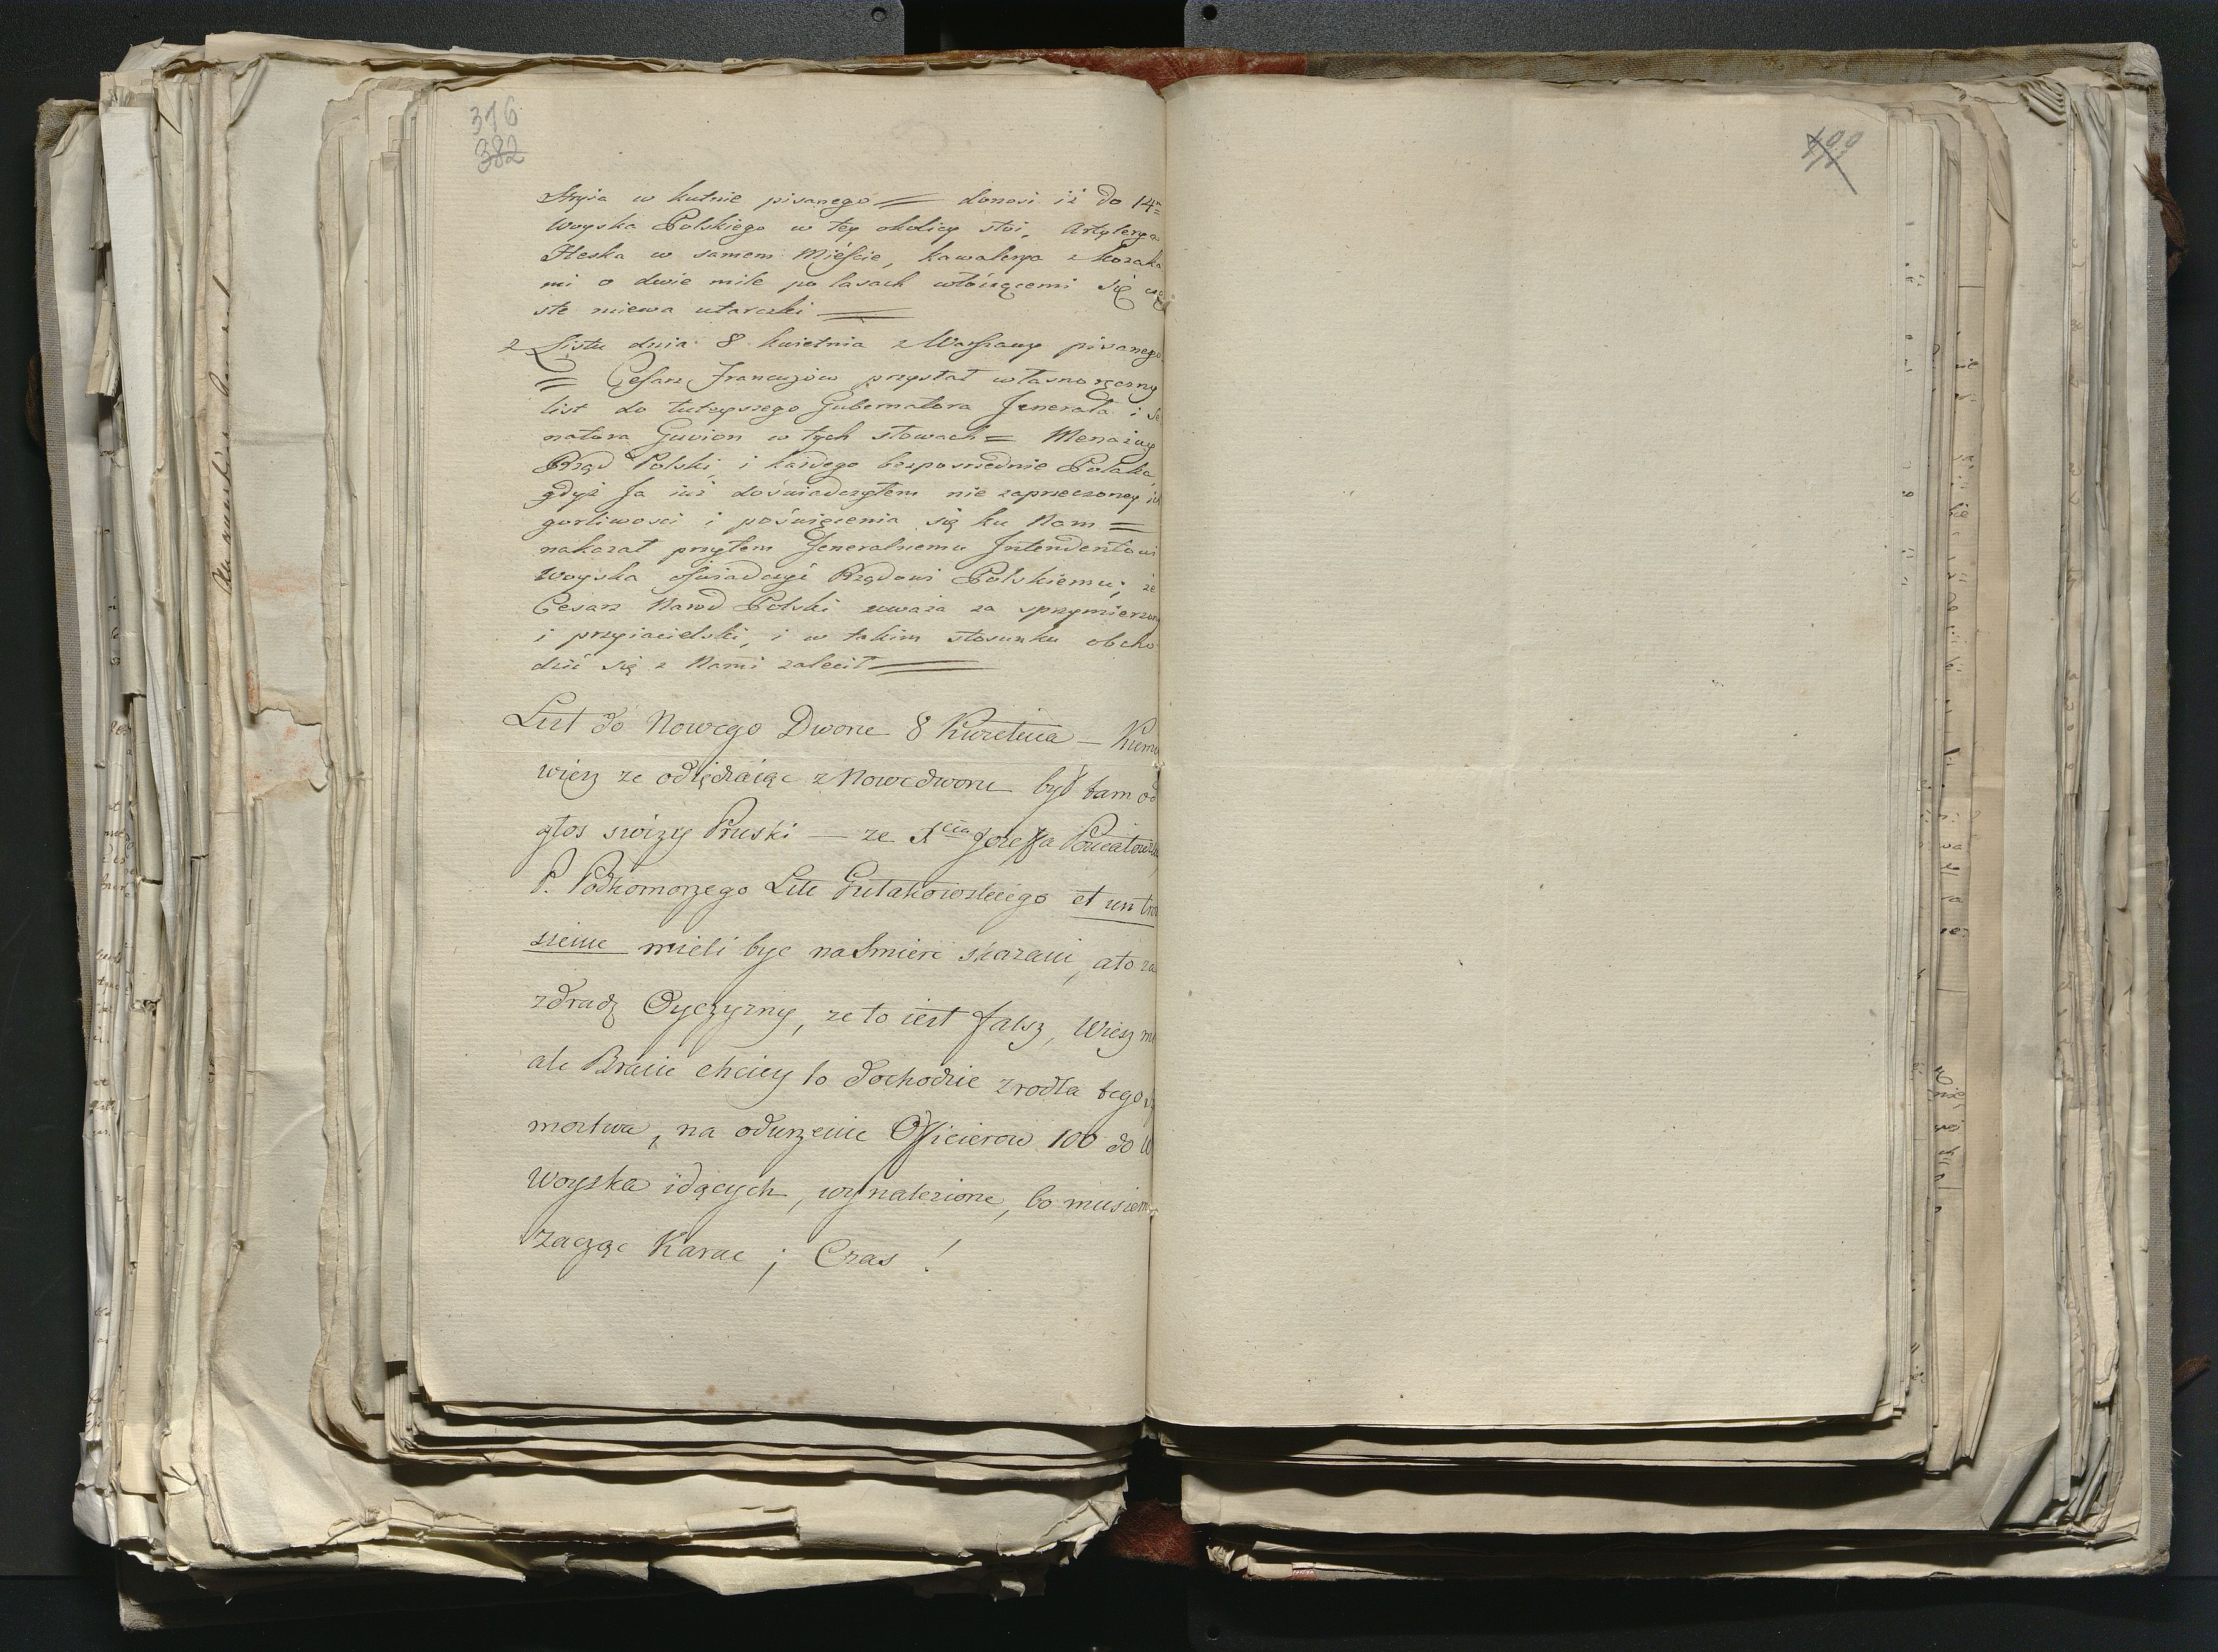 316
382
400
Stryia w kutnie pisanego = donosi iż do 14m
Woyska Polskiego w tey okolicy stoi, Artylerya
Heska w samem Mieście, kawalerya z kozaka
mi o dwie mile po lasach włóczącemi się czę
ste miewa utarczki =
z Listu dnia 8 kwietnia z Warszawy pisanego
= Cesarz Francuzów przysłał własnoręczny
list do tuteyszego Gubernatora Jenerała i Se
natora Guvion w tych słowach = Menażuy
Rząd Polski, i każdego bezposrednie Polaka,
gdyż Ja iuż doświadczyłem nie zaprzeczoney ich
gorliwosci i poświęcenia się ku Nam =
nakazał przytem Jeneralnemu Intendentowi
Woyska oświadczyć Rządowi Polskiemu; że
Cesarz Naród Polski uważa za sprzymierzony
i przyiacielski, i w takim stosunku obcho
dzić się z Nami zalecił =
List do Nowego Dworu 8 Kwietnia —
wiesz ze odieżdzaiąc z Nowedworu był tam od
głos swiży Pruski — ze Xcia Jozeffa Poniatowsk
P. Podkomorzego Lit: Gutakowskiego et un tro
sieme mieli byc na Smierc skazani, a to za
zdradę Oyczyzny, ze to iest fałsz, Wiesz
ale Bracie chciey to dochodzic zrodła tego
morstwa, na odurzenie Officierow 100 do W
Woyska idących, wynalezione, bo musiem
zacząc Karac ; Czas !